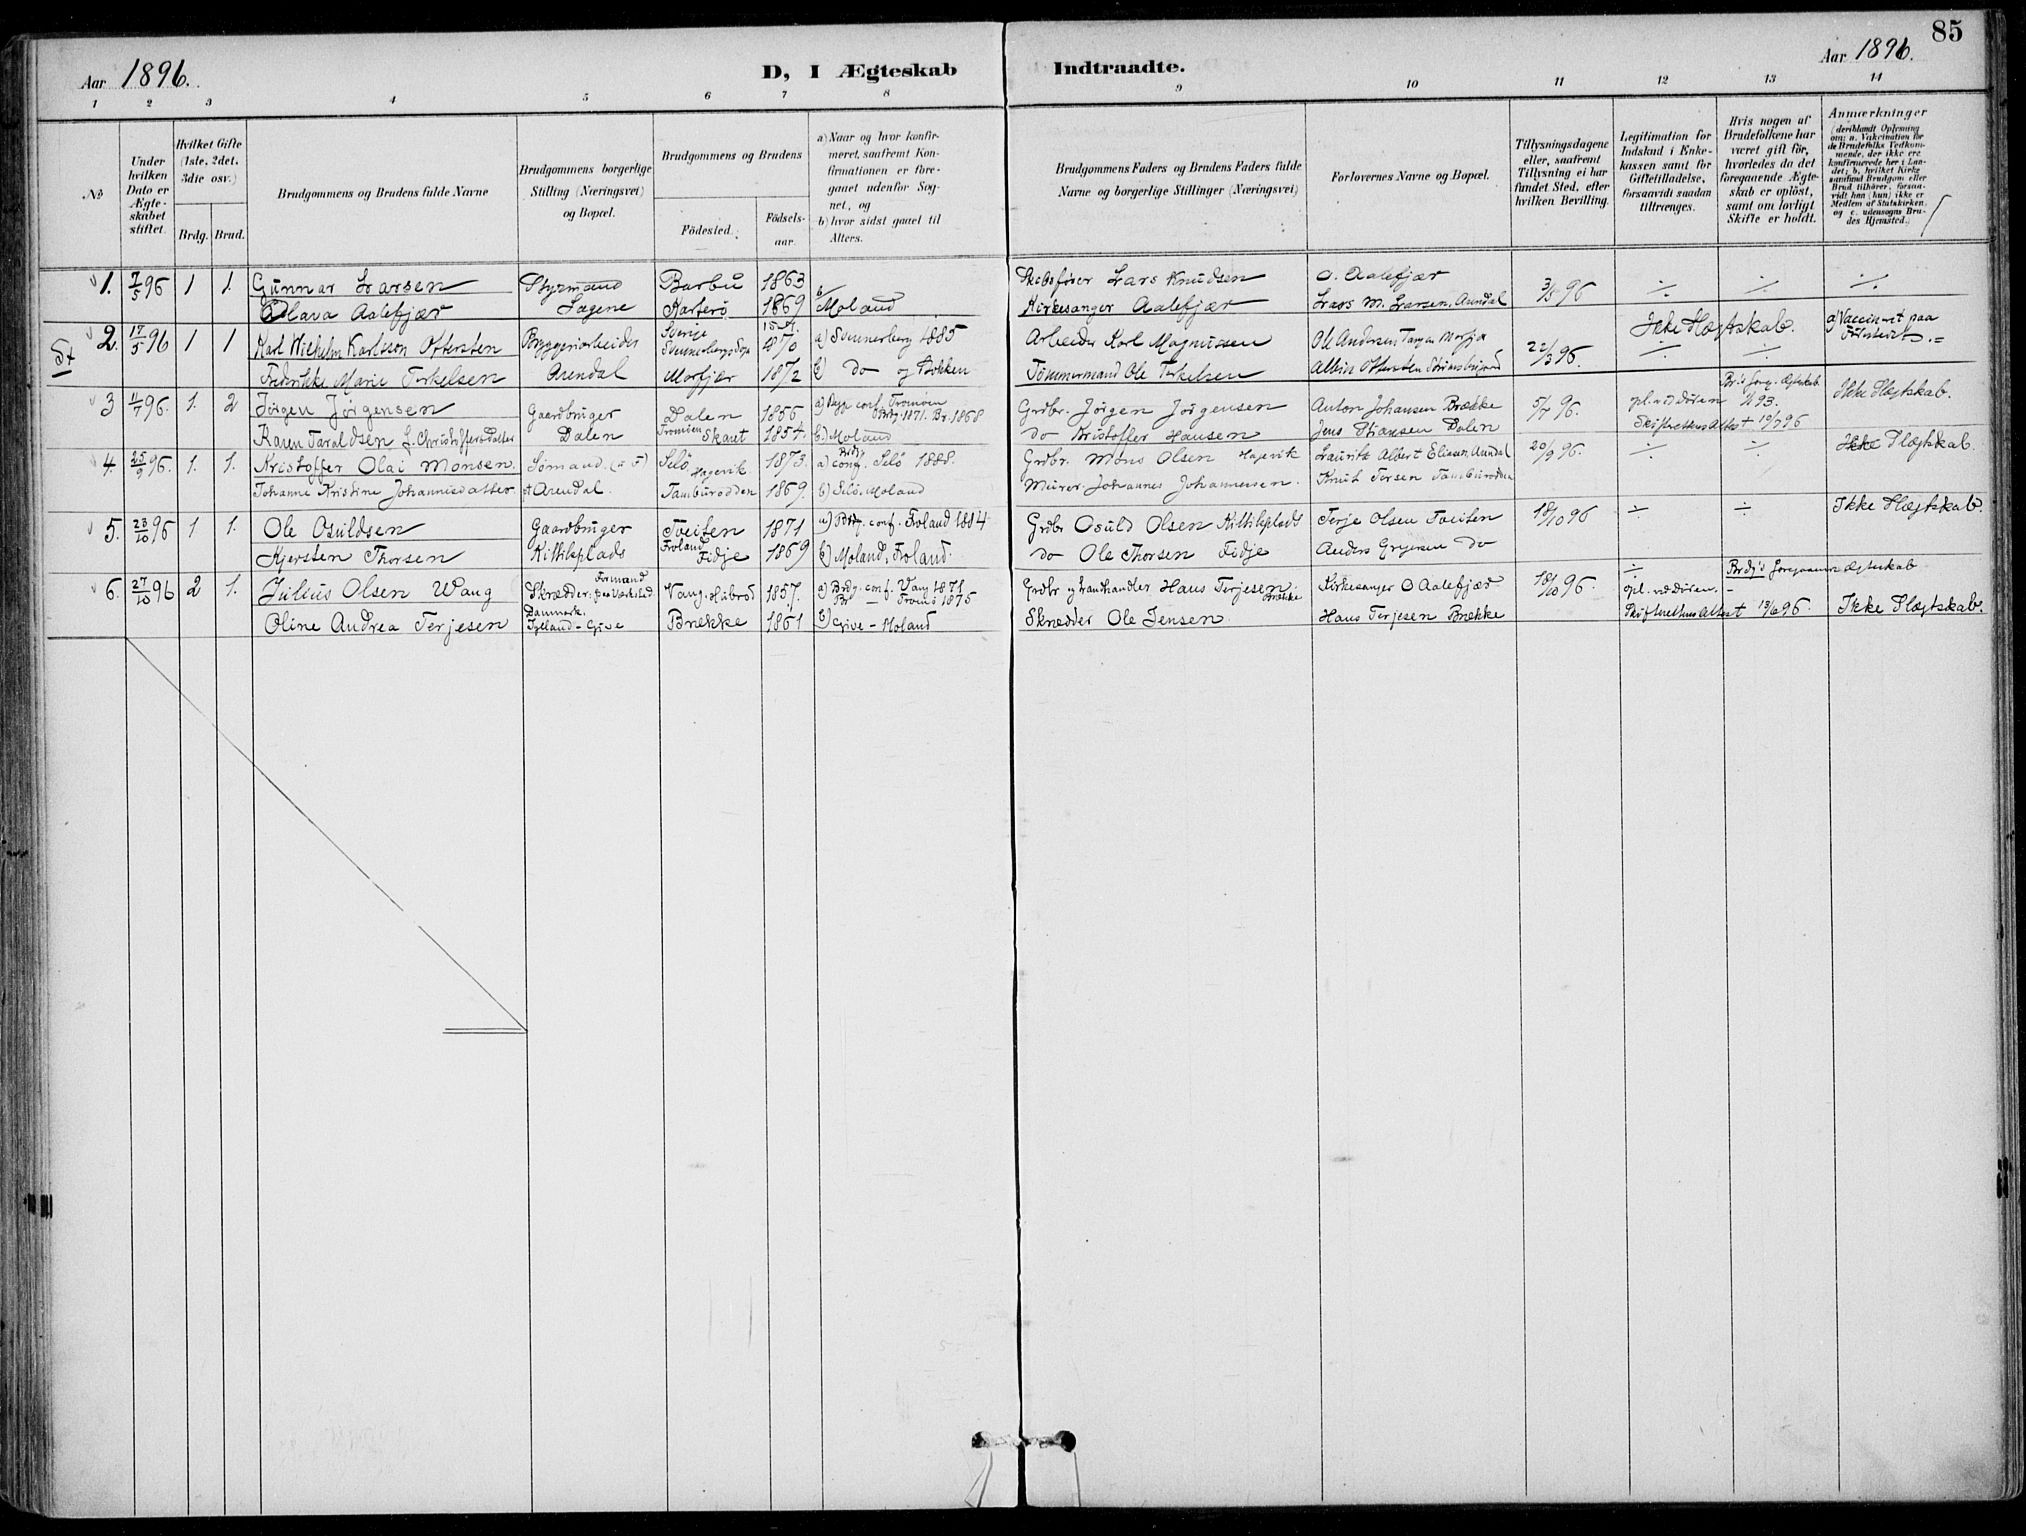 85
Aar 1896.
D, I Ægteskab Indtraadte.
Aar 1896.
1 2 3 4 5 6 7 8 9 10 11 12 13 14
No.
Under hvilken Dato er Ægteskabet stiftet.
Hvilket Gifte (1ste, 2det, 3die osv.)
Brdg. Brud.
Brudgommens og Brudens fulde Navne
Brudgommens borgerlige Stilling (Næringsvei) og Bopæl.
Brudgommens og Brudens
Födested.
Födsels-aar.
a) Naar og hvor konfirmeret, saafremt Konfirmationen er foregaaet udenfor Sognet, og
b) hvor sidst gaaet til Alters.
Brudgommens Faders og Brudens Faders fulde Navne og borgerlige Stillinger (Næringsvei)
Forlovernes Navne og Bopæl.
Tillysningsdagene eller, saafremt Tillysning ei har fundet Sted, efter hvilken Bevilling.
Legitimation for Indskud i Enkekassen samt for Giftetilladelse, forsaavidt saadan tiltrænges.
Hvis nogen af Brudefolkene har været gift før, hvorledes da det foregaaende Ægteskab er oplöst, samt om lovligt Skifte er holdt.
Anmærkninger (deriblandt Oplysning om: a. Vakcination for de Brudefolks Vedkommende, der ikke ere konfirmerede her i Landet; b. hvilket Kirkesamfund Brudgom eller Brud tilhörer, forsaavidt han (hun) ikke er Medlem af Statskirken, og c. udensogns Brudes Hjemsted.)
1. 7/5 96 1 1. Gunnar Larsen Styrmand Barbu 1863 Skibsfører Lars Knudsen O. Aalefjær 3/5 96 ÷ ÷ ÷
Olava Aalefjær Sagene Katerø 1869 b) Moland Kirkesanger Aalefjær Lars M. Larsen, Arendal
2. 17/5 96 1 1 Karl Wilhelm Karlsson Ottersten Bryggeriarbeider Sverige 1870 a) Svinnerberg 1885 Arbeider Karl Magnussen Ole Andersen 22/3 96 Ikke Slægtskab. a) Vaccineret paa
Fredrikke Marie Terkelsen Arendal Morfjær 1872 b) do og Stokken Tömmermand Ole Terkelsen Albin Ottersten ÷ ÷
3 11/7 96. 1. 2 Jörgen Jörgensen Gaardbruger Dalen 1856 a) Begge conf. Tromöen Brdg. 1871. Br. 1868 Grdbr. Jörgen Jörgensen Anton Johansen Brække 5/7 96. opl. ved Döden Br's foreg. Ægteskab 93. Ikke Slægtskab.
Karen Taraldsen f. Christoffersdatter Dalen Tromöen Skaret 1854. b) Moland do Kristoffer Hansen Jens Hansen Dalen Skifterettens Attest 10/7 96
4. 25/9 96. 1. 1. Kristoffer Olai Monsen. Sömand. Selö Hagevik 1873. a) Brdg. conf. Selö 1888. Grdbr. Mons Olsen Hagevik Laurits Albert Eliasen, Arendal 20/9 96. ÷ ÷ Ikke Slægtskab.
Johanne Kristine Johannesdatter Arendal. Tamburodden 1869. b) Selö. Moland Murer Johannes Johannesen. Knut Torsen Tamburodden
5. 23/10 96 1 1. Ole Osuldsen Gaardbruger Tveiten 1871 a) Brdg. conf. Froland 1884 Grdbr Osuld Olsen Kittilsplads Terje Olsen Tveiten 18/10 96 ÷ ÷ Ikke Slægtskab.
Kjersten Thorsen Kittilsplads Froland Fidje 1869 b) Moland, Froland. do Ole Thorsen Fidje Anders do
6. 27/10 96 2 1. Julius Olsen Wang Skrædder, Formand Vang. 1857. a) Brdg. conf. Vang 1871 Br — Tromö 1875 Grdbr og Landhandler Hans Terjesen Brække Kirkesanger O Aalefjær 18/10 96. ÷ opl. ved döden. Brdg's foregaaende Ægteskab
Oline Andrea Terjesen Danmark. Jylland - Give Brække 1861 b) Give - Moland Skrædder Ole Jensen. Hans Terjesen Brække Skifterettens Attest 13/6 96. Ikke Slægtskab.